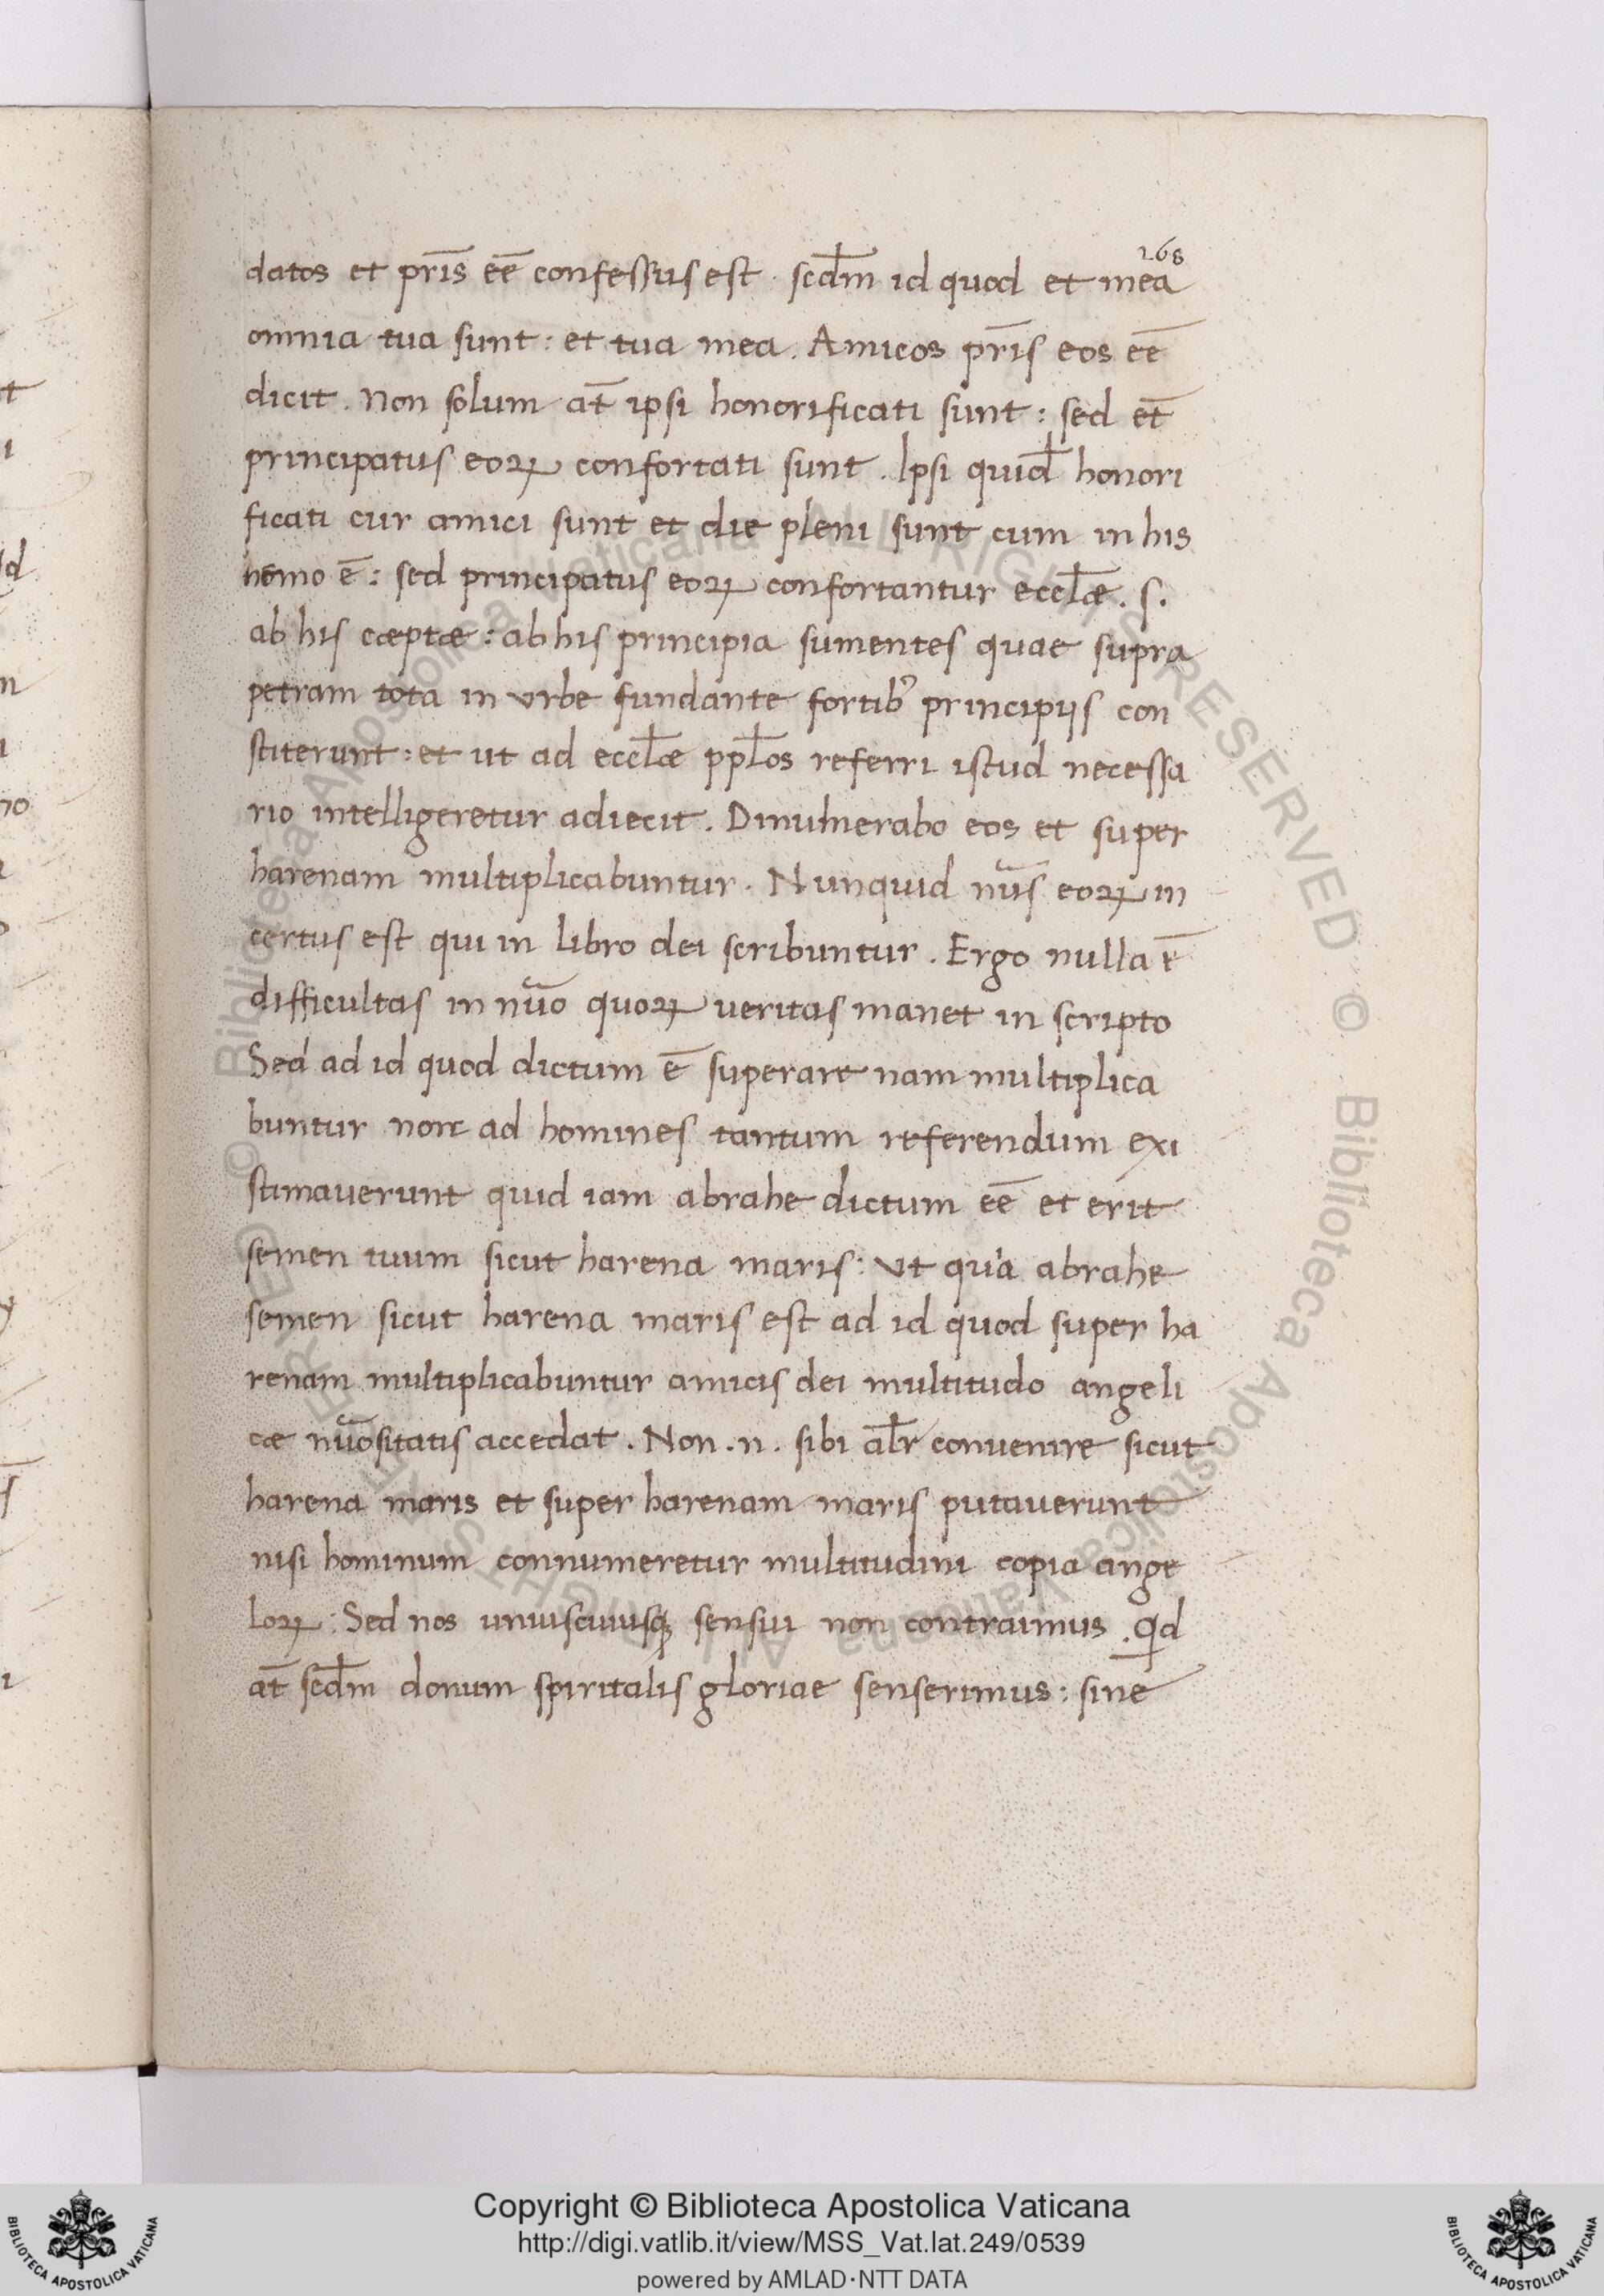 268
datos et pr̄is eē confessus est. scd̄m id quod et mea
omnia tua sunt: et tua mea. Amicos pr̄is eos eē
dicit. Non solum at̄ ipsi honorificati sunt: sed et̄
principatus eoꝝ confortati sunt. Ipsi quid̄ honori
ficati cur amici sunt et die pleni sunt cum in his
homo ē: sed principatus eoꝝ confortantur eccl̄æ. s.
ab his cæptæ: ab his principia sumentes quae supra
petram tota in vrbe fundante fortib᾿ principijs con
stiterunt: et ut ad eccl̄æ ppl̄os referri istud necessa
rio intelligeretur adiecit. Dinumerabo eos et super
harenam multiplicabuntur. Nunquid nūs eoꝝ in
certus est qui in libro dei scribuntur. Ergo nulla ē
difficultas in nūo quoꝝ veritas manet in scripto
Sed ad id quod dictum ē superare nam multiplica
buntur non ad homines tantum referendum exi
stimaverunt quid iam abrahe dictum eē et erit
semen tuum sicut harena maris: vt quia abrahe
semen sicut harena maris est ad id quod super ha
renam multiplicabuntur amicis dei multitudo angeli
cæ nūositatis accedat. Non .n. sibi al̄r convenire sicut
harena maris et super harenam maris putaverunt
nisi hominum connumeretur multitudini copia ange
loꝝ: Sed nos uniuscuiusqꝫ sensui non contraimus. Qd
at̄ scd̄m donum spiritalis gloriae senserimus: sine
Copyright © Biblioteca Apostolica Vaticana
http://digi.vatlib.it/view/MSS_Vat.lat.249/0539
powered by AMLAD·NTT DATA